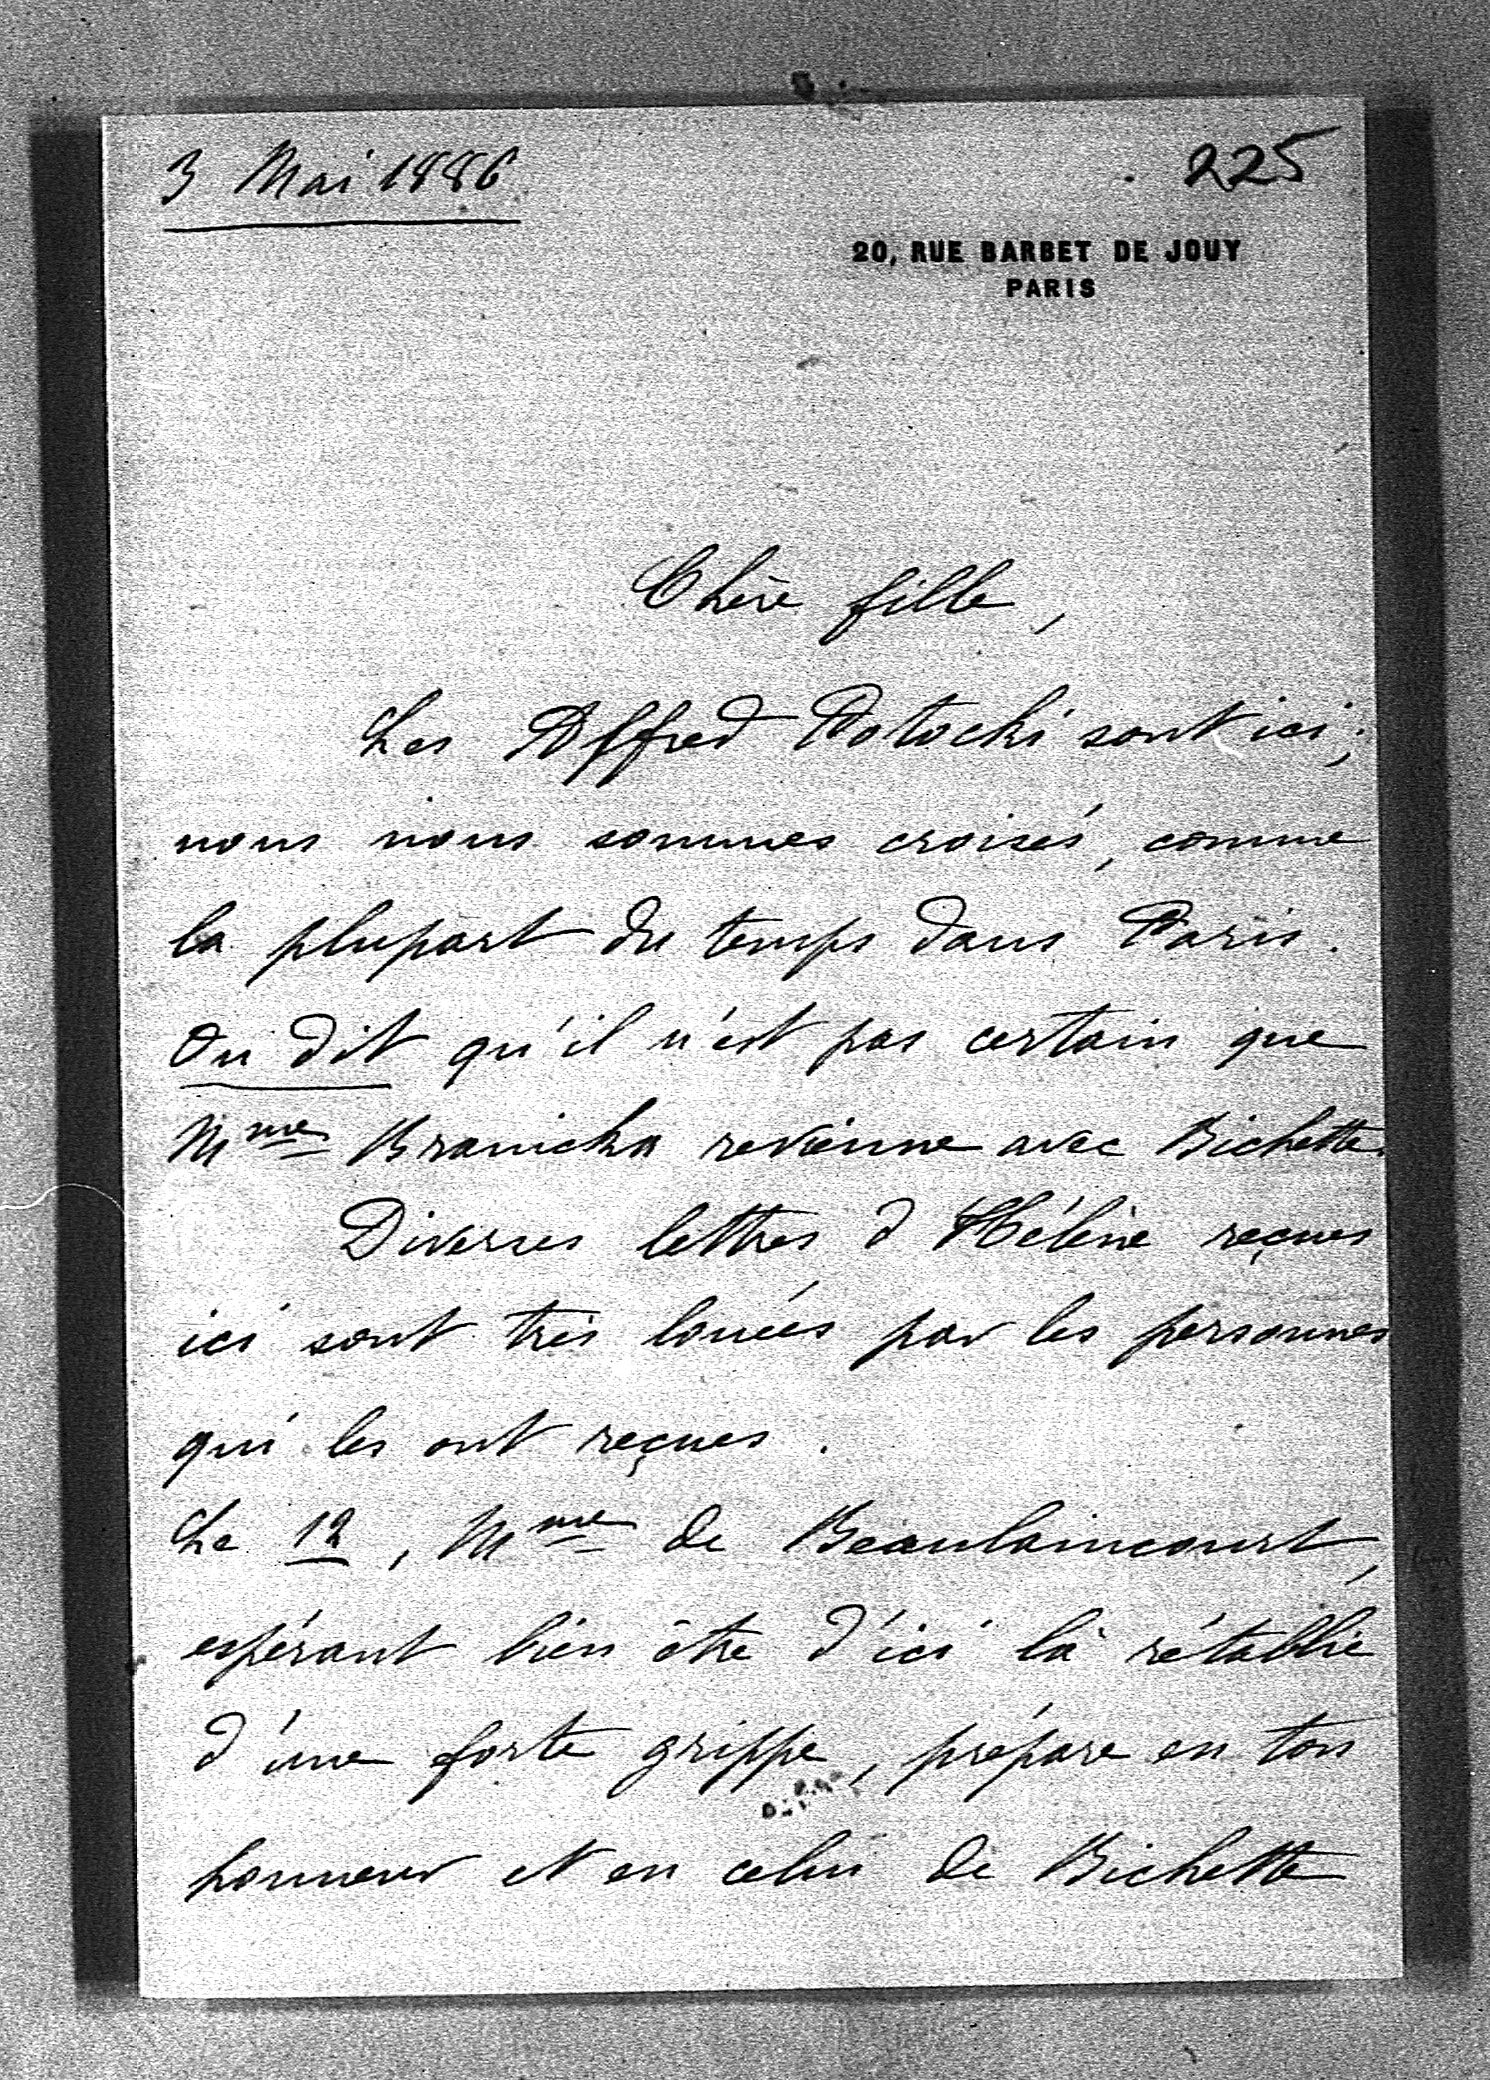 3 Mai 1886
225
20, RUE BARBET DE JOUY
PARIS
Chère fille,
Les Alfred Potocki sont ici;
nous nous sommes croisés, comme
la plupart du temps dans Paris.
On dit qu'il n'est pas certain que
Mme Branicka revienne avec Bichette.
Diverses lettres d'Hélène reçues
ici sont très louées par les personnes
qui les ont reçues.
Le 12, Mme de Beaulaincourt,
espérant bien être d'ici là rétablie
d'une forte grippe, prépare en ton
honneur et en celui de Bichette